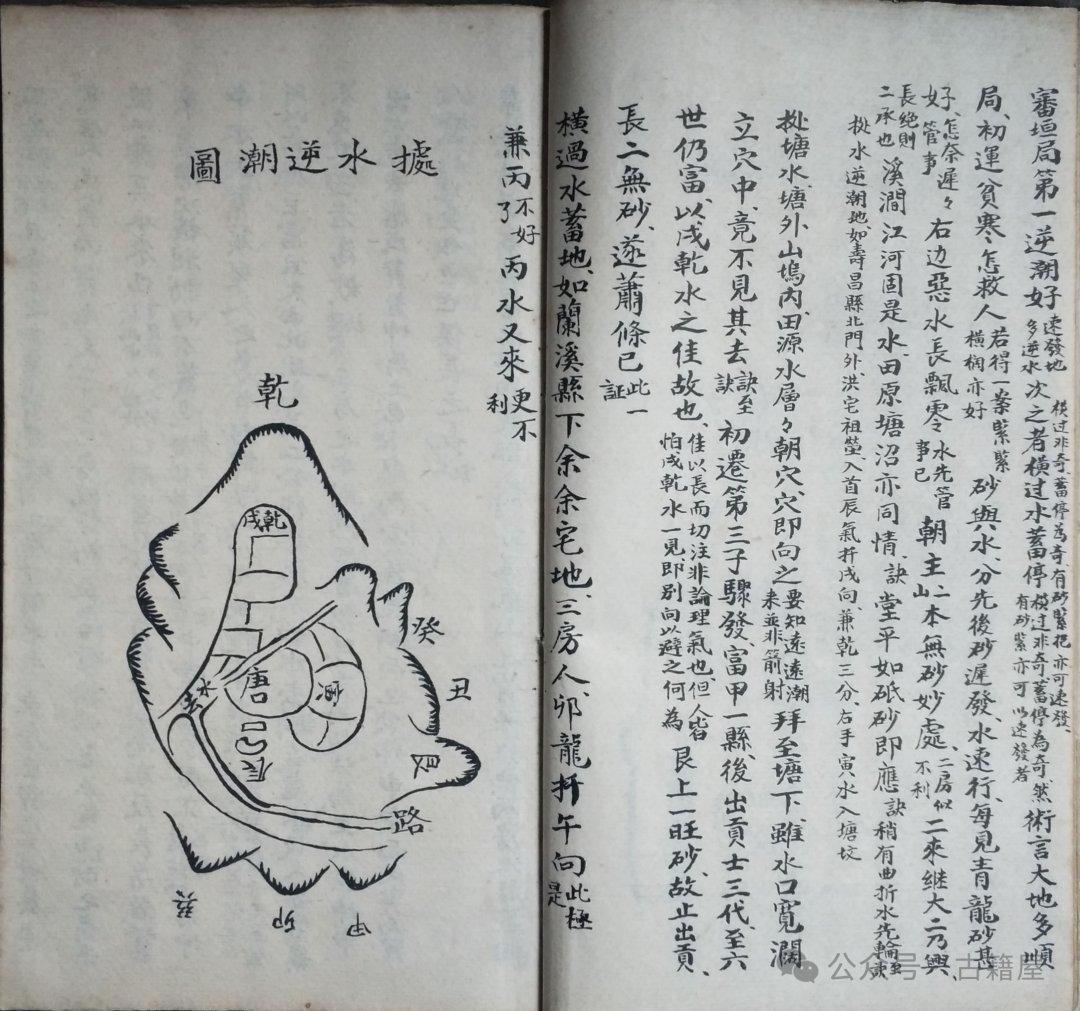 審垣局第一逆潮好速發地多逆水次之者橫過水蓄停橫過非奇蓄停為奇然有砂緊亦可以速發者術言大地多順
橫过非奇蓄停為奇有砂緊抱亦可速發
局初運貧寒怎救人若得一案緊緊橫欄亦好砂與水分先後砂遲發水速行每見青龍砂甚
好怎奈遲々管事右边惡水長飄零水先管事已朝主山二本無砂妙處二房似不利二來継大二乃興
長絶則二承也溪澗江河固是水田原塘沼亦同情訣堂平如砥砂即應訣稍有曲折水先輪
扦水逆潮地如壽昌縣北門外洪宅祖塋入首辰氣扦戌向兼乾三分右手寅水入塘坟
扦塘水塘外山塢内田源水層々朝穴穴即向之要知遠遠潮来並非箭射拜至塘下雖水口寬濶
立穴中竟不見其去訣至訣初遷第三子驟發富甲一縣後出貢士三代至六
世仍富以戌乾水之佳故也佳以長而切注非論理氣也但人皆怕戌乾水一見即别向以避之何為艮上一旺砂故止出貢
長二無砂遂蕭條已此一証
橫過水蓄地如蘭溪縣下余余宅地三房人卯龍扞午向此極是
兼丙不好了丙水又來更不利
據水逆潮圖
乾
乾戌
癸
丑
水
唐
辰
路
卯
甲
公众号 古籍屋